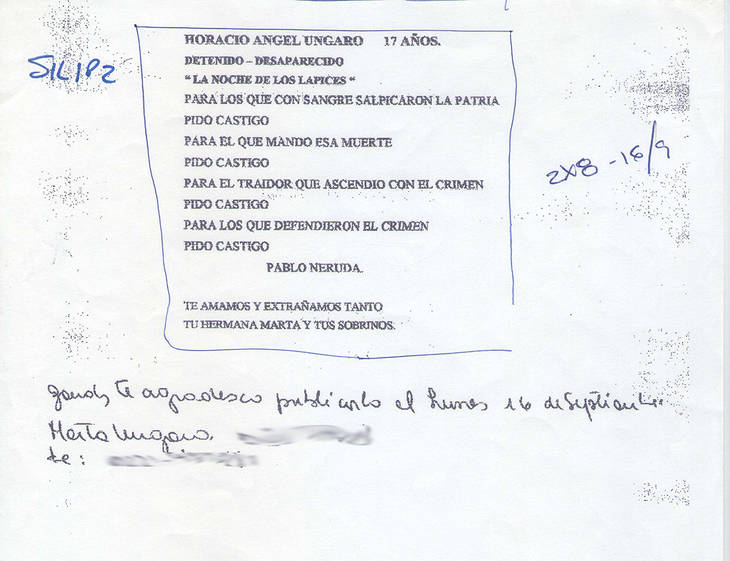 HORACIO ANGEL UNGARO 17 AÑOS.
DETENIDO – DESAPARECIDO
“ LA NOCHE DE LOS LAPICES “
PARA LOS QUE CON SANGRE SALPICARON LA PATRIA
PIDO CASTIGO
PARA EL QUE MANDO ESA MUERTE
PIDO CASTIGO
PARA EL TRAIDOR QUE ASCENDIO CON EL CRIMEN
PIDO CASTIGO
PARA LOS QUE DEFENDIERON EL CRIMEN
PIDO CASTIGO
PABLO NERUDA.
TE AMAMOS Y EXTRAÑAMOS TANTO
TU HERMANA MARTA Y TUS SOBRINOS.
2x8 - 16/9
te agradesco publicarlo el Lunes 16 de Septiembre
Marta Ungaro.
te: